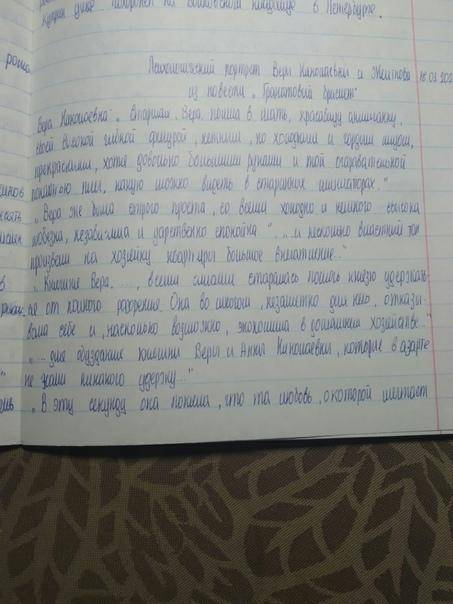 Куприн
похоронен на Волковском кладбище в Петербурге.
Психологический портрет Веры Николаевны и Желткова 18.03.202
из повести "Гранатовый браслет"
Вера Николаевна: "Старшая, Вера, пошла в мать, красавицу англичанку,
своей высокой гибкой фигурой, нежным, но холодным и гордым лицом,
прекрасными, хотя довольно большими руками и той очаровательной
покатостью плеч, какую можно видеть на старинных миниатюрах."
"Вера же была строго проста, со всеми холодно и немного свысока
любезна, независима и царственно спокойна" "и несколько властный тон
произвели на хозяйку квартиры большое впечатление..."
"Княгиня Вера, ..., всеми силами старалась помочь князю удержать-
ся от полного разорения. Она во многом, незаметно для него, отказы-
вала себе и, насколько возможно, экономила в домашнем хозяйстве..."
"...для обуздания княгини Веры и Анны Николаевны, которые в азарте
не знали никакого удержу..."
"В эту секунду она поняла, что та любовь, о которой мечтает